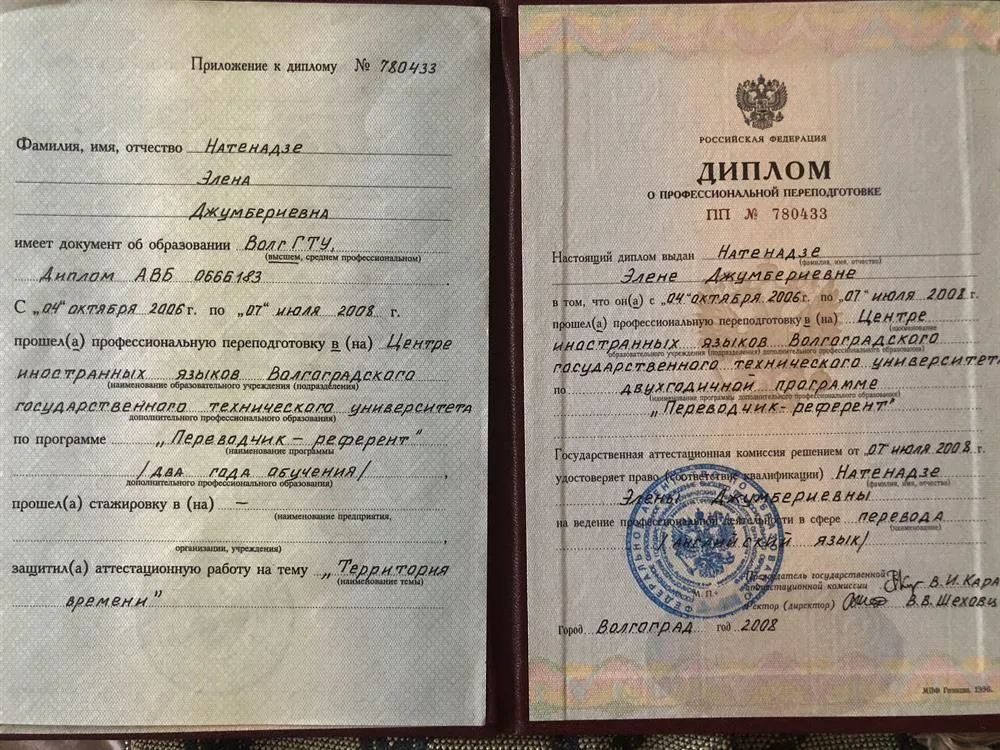 Приложение к диплому № 780433
Фамилия, имя, отчество Натенадзе
Элена
Джумбериевна
имеет документ об образовании ВолгГТУ,
(высшем, среднем профессиональном)
Диплом АВБ 0666183
С „04" октября 2006г. по „07" июля 2008 г.
прошел(а) профессиональную переподготовку в (на) Центре
иностранных языков Волгоградского
(наименование образовательного учреждения (подразделения)
государственного технического университета
дополнительного профессионального образования)
по программе „Переводчик – референт"
(наименование программы
/два года обучения/
дополнительного профессионального образования)
прошел(а) стажировку в (на) —
(наименование предприятия,
организации, учреждения)
защитил(а) аттестационную работу на тему „Территория
(наименование темы)
времени"
РОССИЙСКАЯ ФЕДЕРАЦИЯ
ДИПЛОМ
О ПРОФЕССИОНАЛЬНОЙ ПЕРЕПОДГОТОВКЕ
ПП № 780433
Настоящий диплом выдан Натенадзе
(фамилия, имя, отчество)
Элене Джумбериевне
в том, что он(а) с „04" октября 2006г. по „07" июля 2008 г.
прошел(а) профессиональную переподготовку в (на) Центре
(наименование
иностранных языков Волгоградского
образовательного учреждения (подразделения) дополнительного профессионального образования)
государственного технического университета
по двухгодичной программе
(наименование программы дополнительного профессионального образования)
„Переводчик- референт"
Государственная аттестационная комиссия решением от 07 июля 2008 г.
удостоверяет право (соответствие квалификации) Натенадзе
(фамилия, имя, отчество)
Элены Джумбериевны
на ведение профессиональной деятельности в сфере перевода
/английский язык/
Председатель государственной
аттестационной комиссии В.И.Кара
М. П.
Ректор (директор) В.В.Шеховц
Город Волгоград год 2008
МПФ Гознака. 1996.